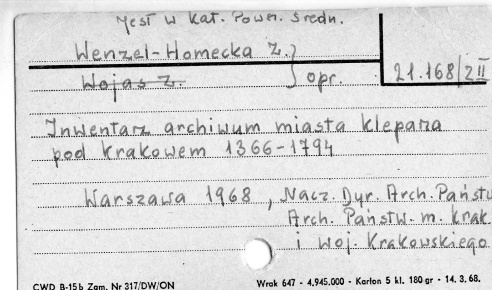 Jest w kat. Pown. średn.
Wenzel-Homecka Z.
Wojas Z. } opr.
21.168/2 II
Inwentarz archiwum miasta Kleparza
pod Krakowem 1366-1794
Warszawa 1968, Nacz. Dyr. Arch. Państw
Arch. Państw. m. Krak.
i woj. Krakowskiego
CWD B-15b Zam. Nr 317/DW/ON
Wrak 647 - 4.945.000 - Karton 5 kl. 180 gr - 14. 3. 68.